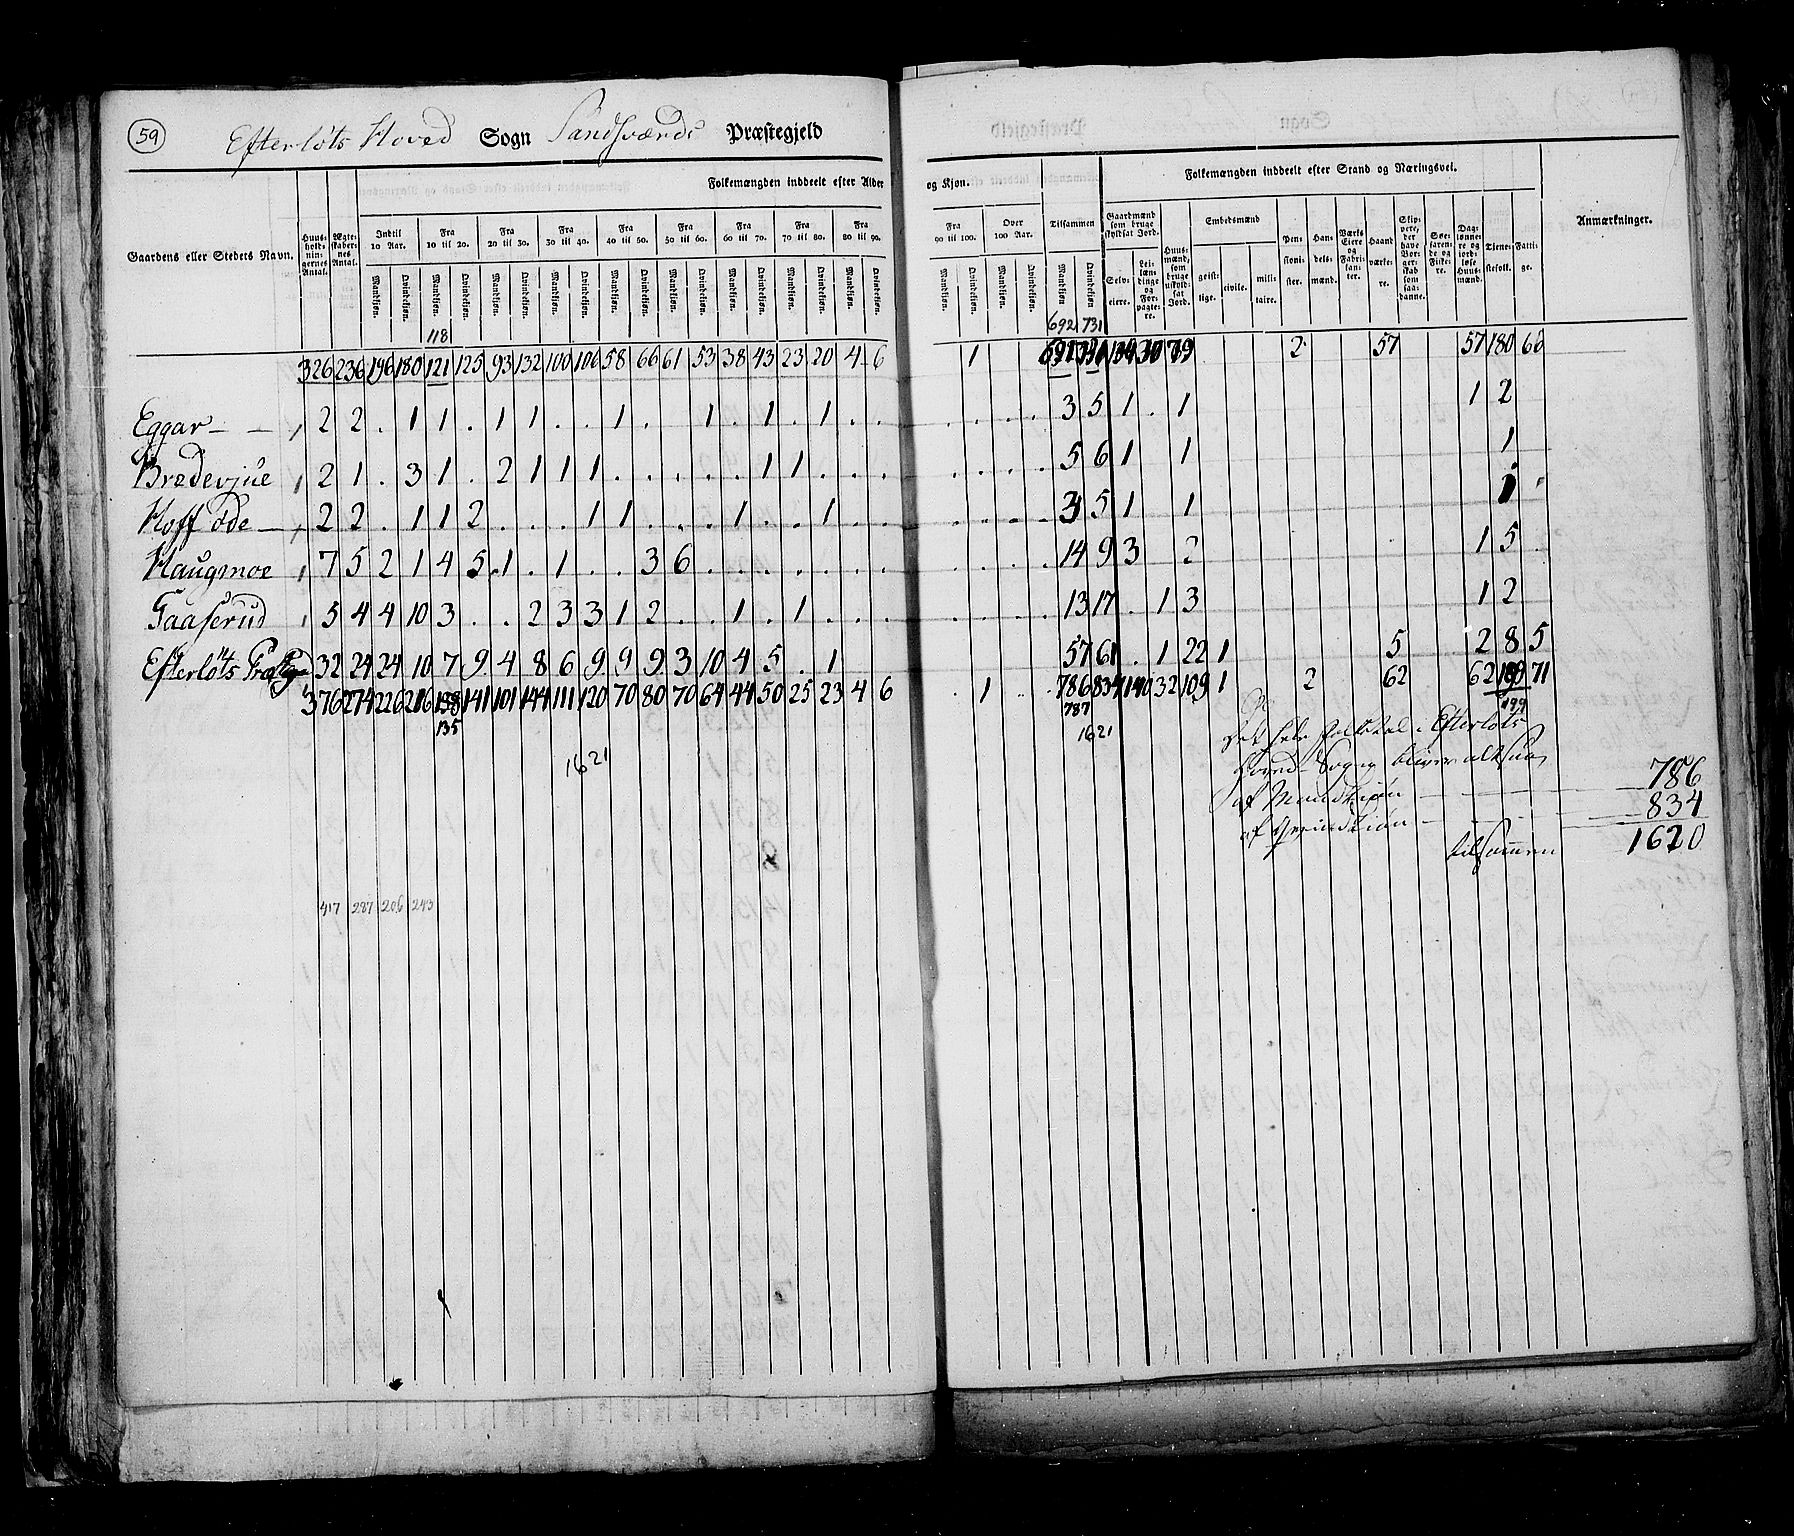 59
Efterløts Hoved Sogn Sandsværds Præstegjeld
Gaardens eller Stedets Navn.
Huusholdningernes Antal.
Ægteskabernes Antal.
Folkemængden inddeelt efter Alder og Kjøn.
Indtil 10 Aar.
Fra 10 til 20.
Fra 20 til 30.
Fra 30 til 40.
Fra 40 til 50.
Fra 50 til 60.
Fra 60 til 70.
Fra 70 til 80.
Fra 80 til 90.
Fra 90 til 100.
Over 100 Aar.
Tilsammen
Mandkjøn. Qvindekjøn.
Folkemængden inddeelt efter Stand og Næringsvei.
Gaardmænd som bruge skyldsat Jord.
Selveiere.
Leilændinge og Forpagtere.
Huusmænd, som bruge uskyldsat Jord.
Embedsmænd
geistlige. civile. militaire.
Pensionister.
Handelsmænd.
Værks Eiere og Fabrikanter.
Haandværkere.
Skippere, der have Borgerskab som saadanne.
Søefarende og Fiskere.
Daglønnere og jordløse Huusmænd.
Tjenestefolk.
Fattige.
Anmærkninger.
118 692 731
326 236 196 180 121 125 93 132 100 106 58 66 61 53 38 43 23 20 4 6 1 2 57 57 180 66
Eggar 2 2 . 1 1 . 1 1 . . 1 . . 1 . 1 . 1 . . 3 5 1 . 1 1 2
Brædevjue 2 1 . 3 1 . 2 1 1 1 . . . . . 1 1 . . . 5 6 1 1 1
Hoff øde 2 2 . 1 1 2 . . . 1 1 . . . 1 . . 1 . . 3 5 1 1 1
Haugmoe 7 5 2 1 4 5 1 . 1 . . 3 6 . . . . . . . 14 9 3 2 1 5
Taaserud 5 4 4 10 3 . . 2 3 3 1 2 . . 1 . 1 . . . 13 17 . 1 3 1 2
Efterløts 32 24 24 10 7 9 4 8 6 9 9 9 3 10 4 5 . 1 57 61 . 1 22 1 5 2 8 5
376 274 226 206 138 141 101 144 111 120 70 80 70 64 44 50 25 23 4 6 . 1 786 834 140 32 109 1 2 62 62 199 71
135 787 199
1621 1621
Det hele Folketal i Efterløts
Hoved-Sogn bliver altsaa
af Mandkjøn 786
af Qvindkjøn 834
tilsammen 1620
417 287 206 243